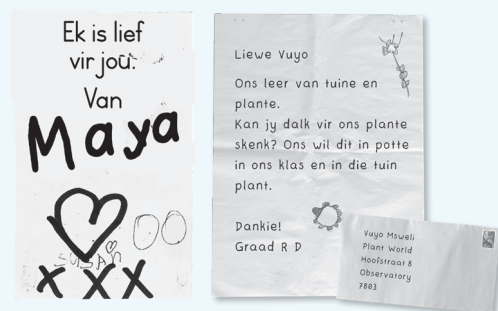 Ek is lief
vir jou.
Van
Maya
SUSAN
XXX
Liewe Vuyo
Ons leer van tuine en
plante.
Kan jy dalk vir ons plante
skenk? Ons wil dit in potte
in ons klas en in die tuin
plant.
Dankie!
Graad R D
Vuyo Msweli
Plant World
Hoofstraat 8
Observatory
7803